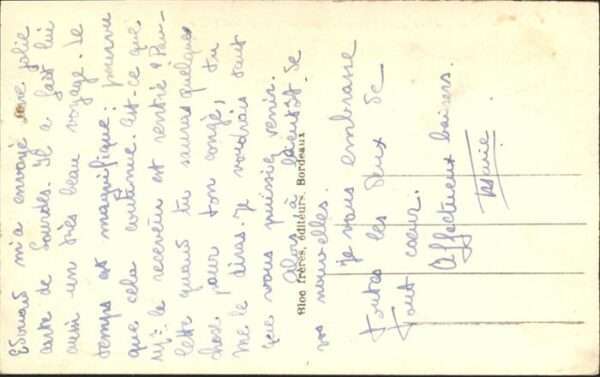 Edouard m'a envoyé une jolie
carte de Lourdes. Il a fait lui
aussi un très beau voyage. Le
temps est magnifique : pourvu
que cela continue. Est-ce que
Mr le receveur est rentré à
lette quand tu sauras quelque
chose pour ton congé, tu
me le diras. Je voudrais tant
que vous puissiez venir.
Alors à bientôt de
vos nouvelles.
Je vous embrasse
toutes les deux de
tout cœur.
Affectueux baisers.
Marie
Bloc frères, éditeurs, Bordeaux